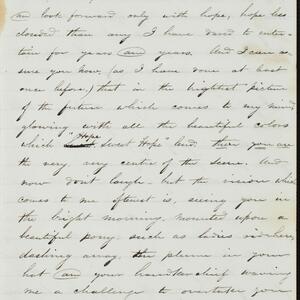 an look forward only with hope, hope less
clouded than any I have dared to enter-
tain for years and years. And I can as-
sure you now, (as I have done at least
once before,) that in the brightest picture
of the future which comes to my mind,
glowing with all the beautiful colors
which "Hope
sweet Hope lend, there you are
the very very centre of the scene. And
now don't laugh - but the vision which
comes to me oftenest is, seeing you in
the bright morning, mounted upon a
beautiful pony, such as ladies ride,
dashing away, the plume in your
hat and your handkerchief waving
me a challenge to overtake you